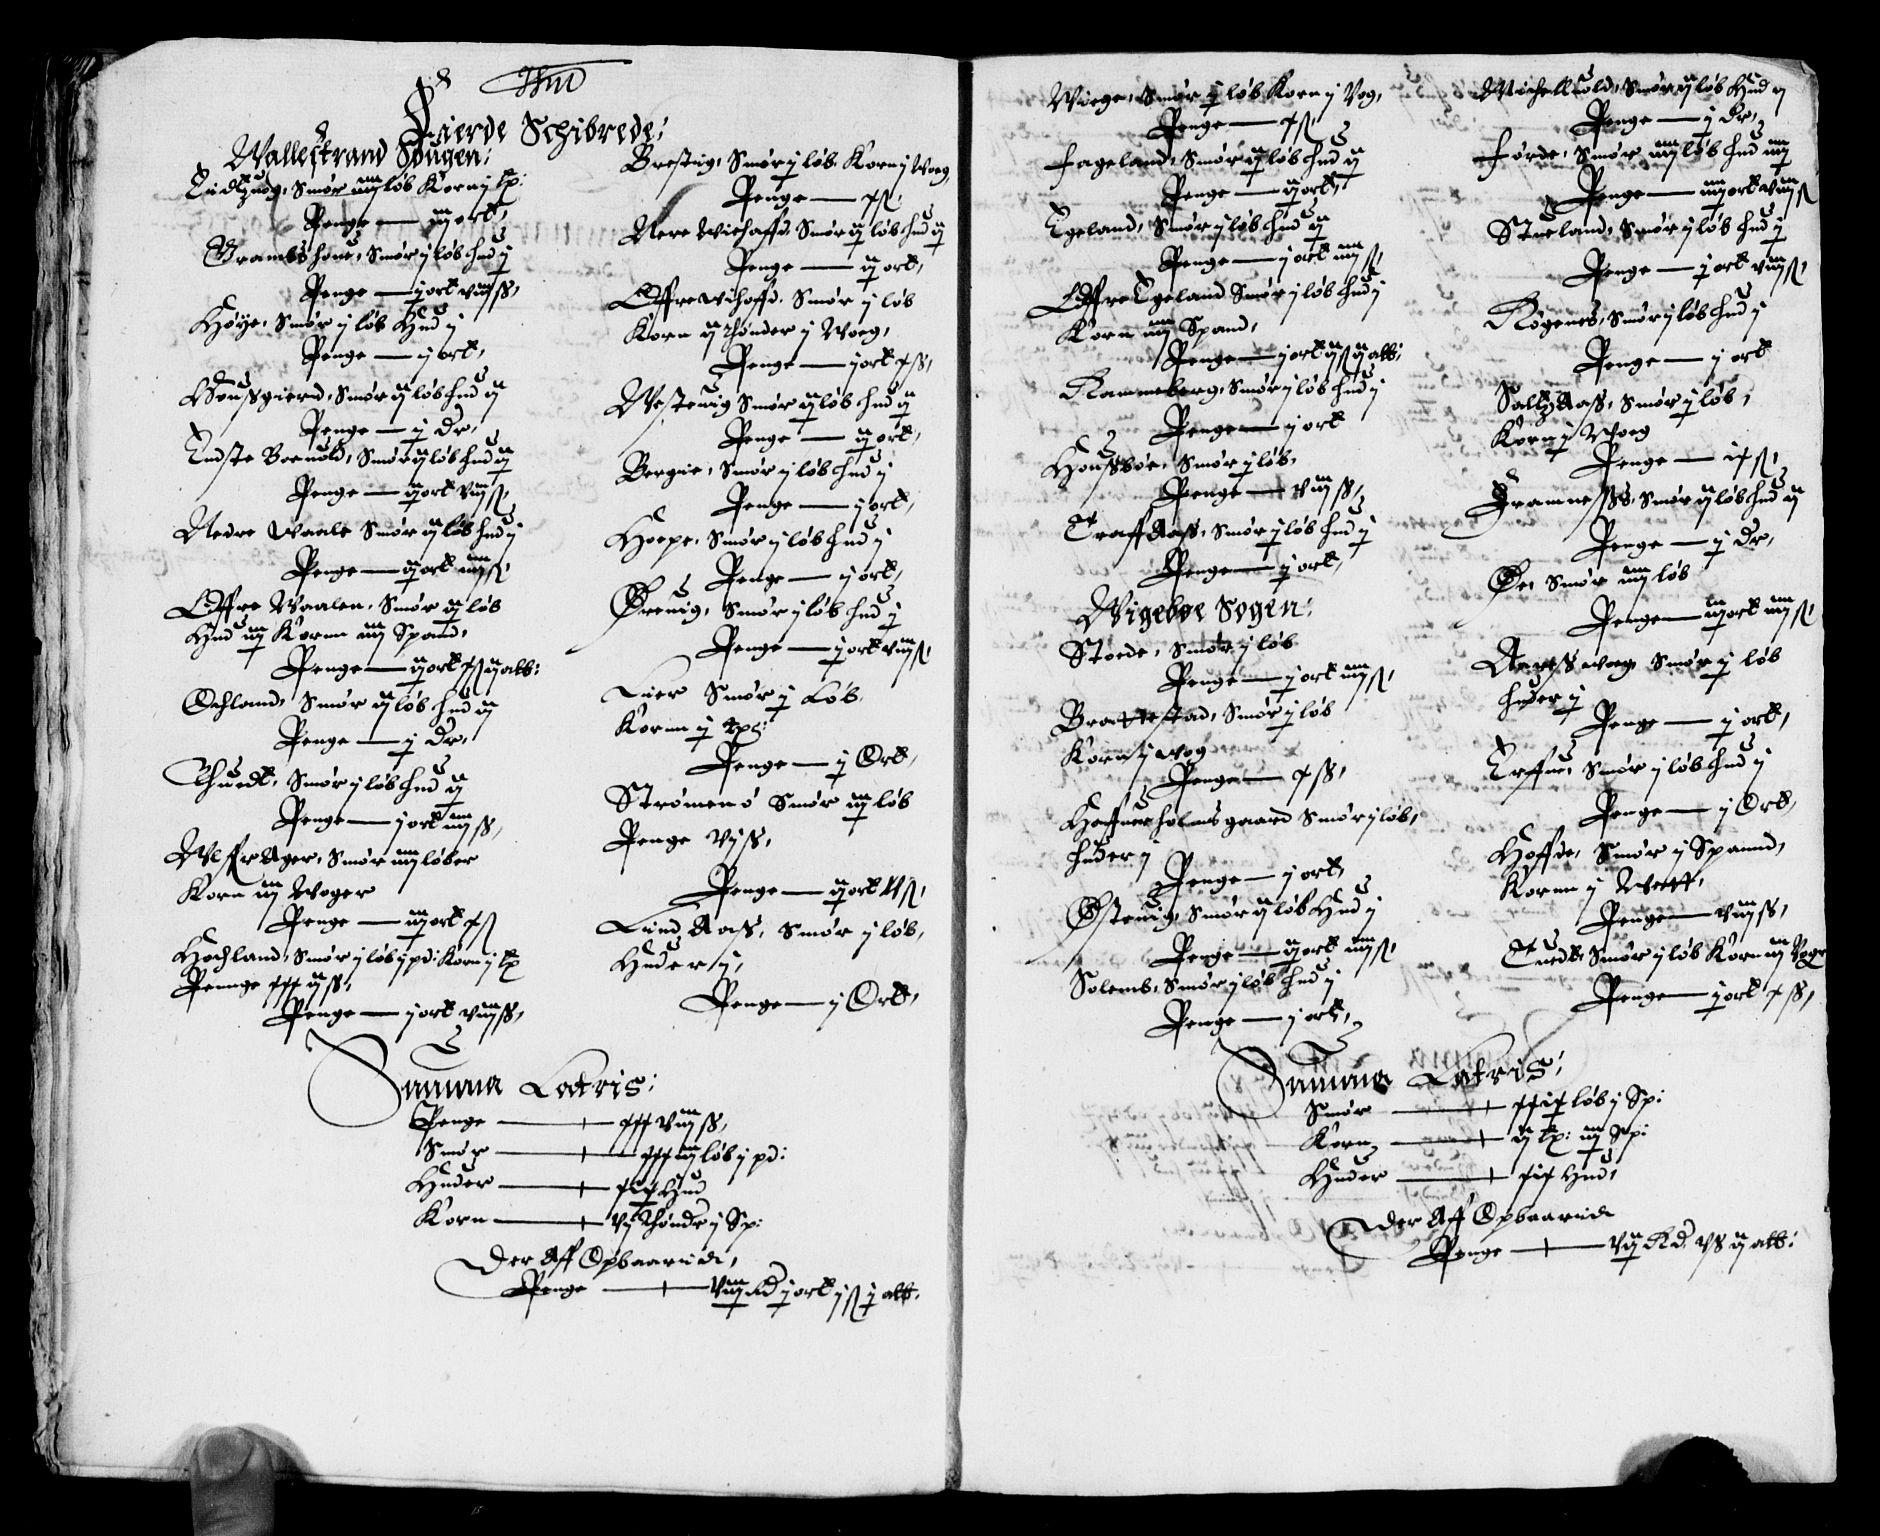 Fierde Schibrede:
Wallestrand Sougen:
Smør iiij løb Korn j tp:
Penge — iij ort,
Bramshoue, Smør j løb Hud j
Penge — j ort viij ß,
Høÿe, Smør j løb Hud j
Penge — j ort,
Smør ij løb Hud ij
Penge — j Dr,
Smør ij løb Hud ij
Penge — ij ort viij ß,
Nedre Waale Smør ij løb Hud j
Penge — ij ort iiij ß,
Offre Waalen, Smør ij løb
Hud iij Korn iiij Spand,
Penge — ij ort xß ij alb:
Ochland, Smør ij løb Hud ij
Penge — j Dr,
Thuedt, Smør j løb Hud ij
Penge — j ort iiij ß,
Smør iiij løber
Korn iij Woger
Penge — iij ort xß
Hochland, Smør j løb j pd: Korn j tp
Pennge xxx ij ß,
Penge — j ort viij ß,
Brestig, Smør j løb Korn j Woeg,
Penge — xß,
Nere Wiehaffd, Smør ij løb Hud ij
Penge — ij ort,
Offre Wihoffd, Smør j løb
Korn ij thønder j Woeg,
Penge — j ort xß,
Westeuig Smør ij løb Hud ij
Penge — ij ort,
Bergie, Smør j løb Hud j
Penge — j ort,
Hoepe, Smør j løb Hud j
Penge — j ort,
Øreuig, Smør j løb Hud j
Penge — j ort viij ß,
Lier Smør j Løb
Korn ij tpd:
Penge — j Ort,
Strømenø Smør iij løb
Penge vj ß,
Penge — ij ort ß,
Lund Aass, Smør j løb,
Huder j,
Penge — j Ort,
Summa Latris:
Penge — xxx viij ß,
Smør — løb j pd:
Huder — Hud
Korn — vj thøndr j Sp:
Der Aff Opbaaridt,
Penge — viij Rd j ort j ß j alb.
Wiege, Smør j løb Korn j Vog,
Penge — xß,
Fageland, Smør ij løb Hud ij
Penge — ij ort,
Egeland, Smør j løb Hud ij
Penge — j ort iiij ß,
Offre Egeland Smør j løb Hud j
Korn iiij Spand,
Penge — j ort ij ß ij alb:
Ramneberg, Smør j løb Hud j
Penge — j ort
Houssbøe, Smør j løb,
Penge — viij ß,
Smør j løb Hud j
Penge — j ort,
Wigebøe Sogen:
Stoede, Smør j løb
Penge — j ort iiij ß,
Brattestad, Smør j løb
Korn j wog
Penge — xß,
Smør j løb,
Huder j
Penge — j ort,
Østeuig, Smør ij løb Hud j
Penge — ij ort iiij ß,
Solemb, Smør j løb Hud j
Penge — j ort,
Smør ij løb Hud ij
Penge — j Dr,
Førde, Smør iiij løb Hud iiij
Penge — iiij ort viij ß
Stueland, Smør j løb Hud j
Penge — j ort viij ß,
Røgenes, Smør j løb Hud j
Penge — j ort
Saltz Aass, Smør j løb,
Korn j Woeg
Penge — ixß,
Framness, Smør ij løb Hud ij
Penge — j Dr,
Øe, Smør iiij løb
Penge — iij ort iiij ß,
Smør j løb
Huder j
Penge — j ort,
Smør j løb Hud j
Penge — j Ort,
Hoffde, Smør j Spannd,
Korn j Wett,
Penge — viij ß,
Tuedt, Smør j løb Korn iij Voger
Penge — j ort xß,
Summa Latris:
Smør — løb j Sp:
Korn — ij tp: iij Sp:
Huder — xix Hud,
Der Aff Opbaaridt
Penge — vij Rd. vß ij alb: